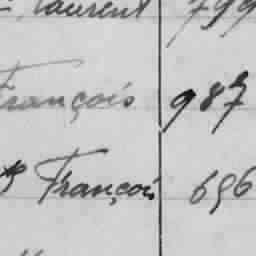 Laurent 799
François 987
François 696